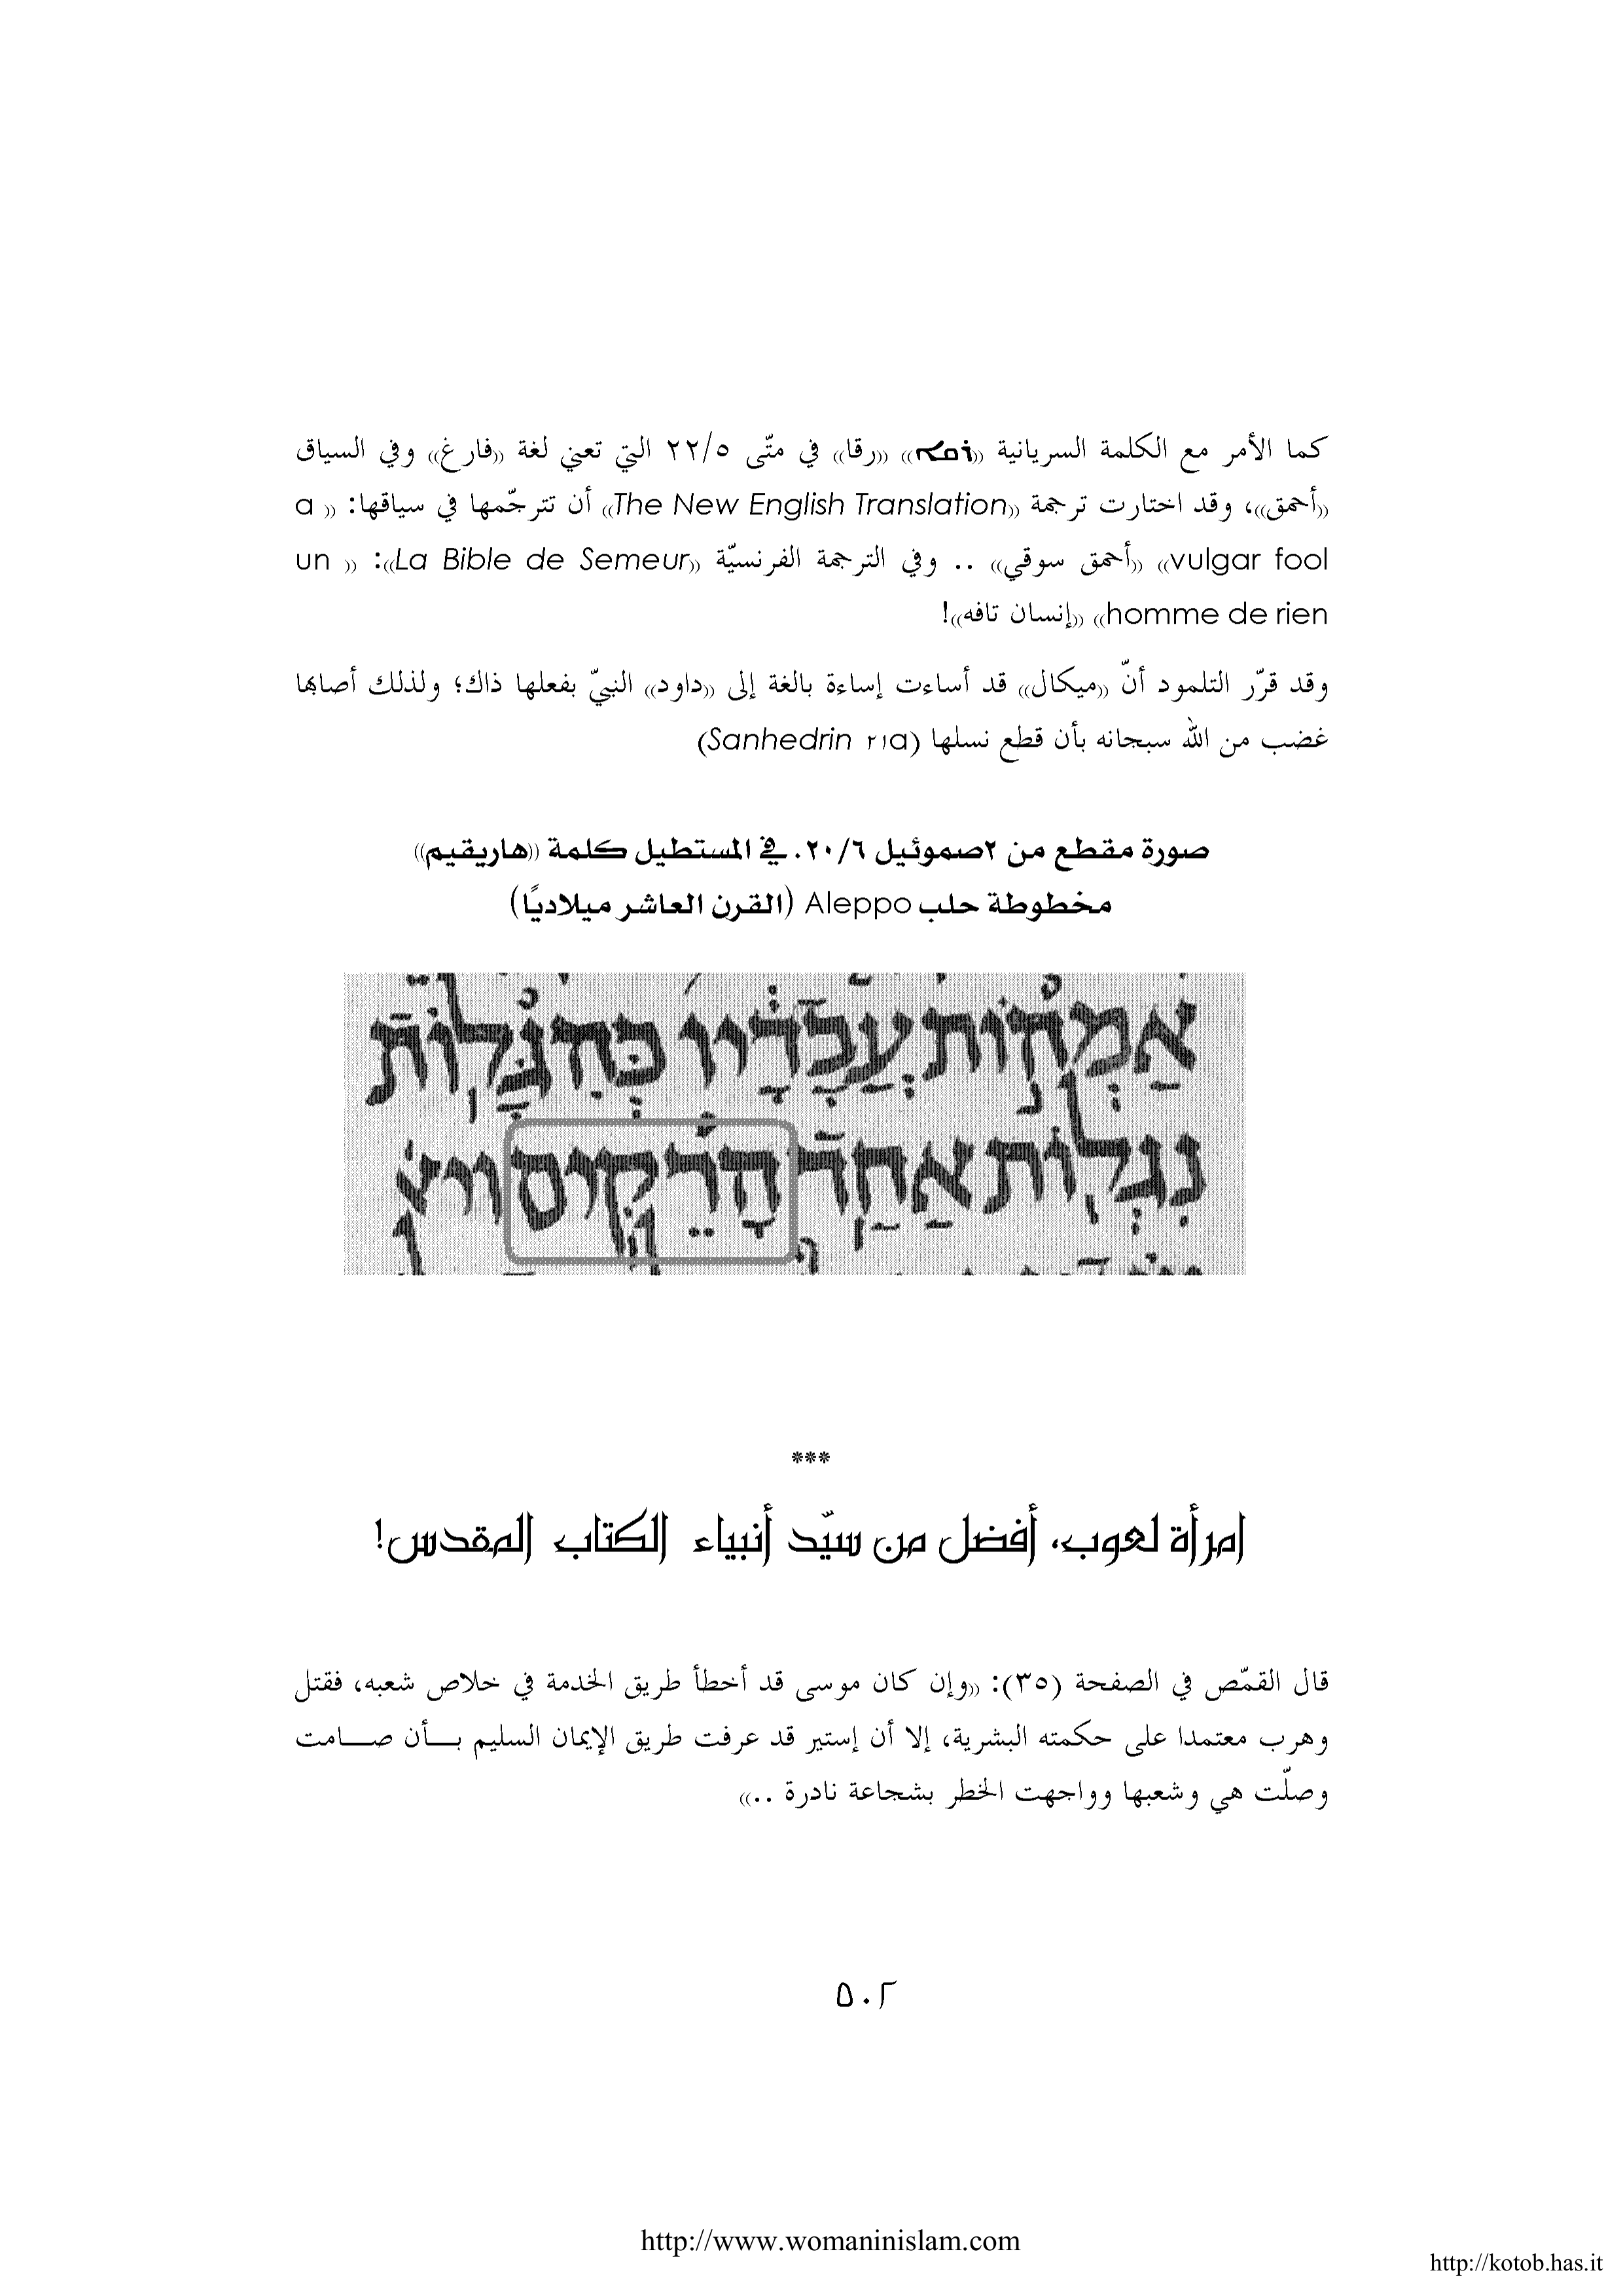 كما الأمر مع الكلمة السريانية «ܪܩܐ» «رقا» في متّى ٢٢/٥ التي تعني لغة «فارغ» وفي السياق
«أحمق»، وقد اختارت ترجمة «The New English Translation» أن تترجّمها في سياقها: « a
vulgar fool» «أحمق سوقي» .. وفي الترجمة الفرنسيّة «La Bible de Semeur»: « un
homme de rien» «إنسان تافه»!
وقد قرّر التلمود أنّ «ميكال» قد أساءت إساءة بالغة إلى «داود» النبيّ بفعلها ذاك؛ ولذلك أصابها
غضب من الله سبحانه بأن قطع نسلها (Sanhedrin ٢١a)
صورة مقطع من ٢صموئيل ٢٠/٦. في المستطيل كلمة «هاريقيم»
مخطوطة حلب Aleppo (القرن العاشر ميلاديًا)
אַמְה֣וֹת עֲבָדָ֔יו כְּהִגָּל֥וֹת
נִגְל֖וֹת אַחַ֥ד הָרֵקִֽים ויא
***
امرأة لعوب، أفضل من سيّد أنبياء الكتاب المقدس!
قال القمّص في الصفحة (٣٥): «وإن كان موسى قد أخطأ طريق الخدمة في خلاص شعبه، فقتل
وهرب معتمدا على حكمته البشرية، إلا أن إستير قد عرفت طريق الإيمان السليم بـــأن صـــامت
وصلّت هي وشعبها وواجهت الخطر بشجاعة نادرة ..»
٥٠٢
http://www.womaninislam.com
http://kotob.has.it